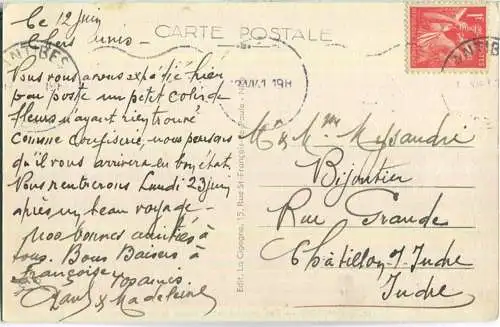 CARTE POSTALE
Le 12 juin
Chers amis
Vous vous avons expédié hier
par poste un petit colis de
fleurs n'ayant rien trouvé
comme confiserie, nous pensons
qu'il vous arrivera en bon état.
Nous rentrerons Lundi 23 juin
après un beau voyage -
Nos bonnes amitiés à
tous. Bons Baisers à
Françoise
vos amis
& Madeleine
ANTIBES
19H
Edit. La Cigogne, 15, Rue St-François-de-Paule - Nice
Mr & Mme
Bijoutier
Rue Grande
Châtillon s/ Indre
Indre